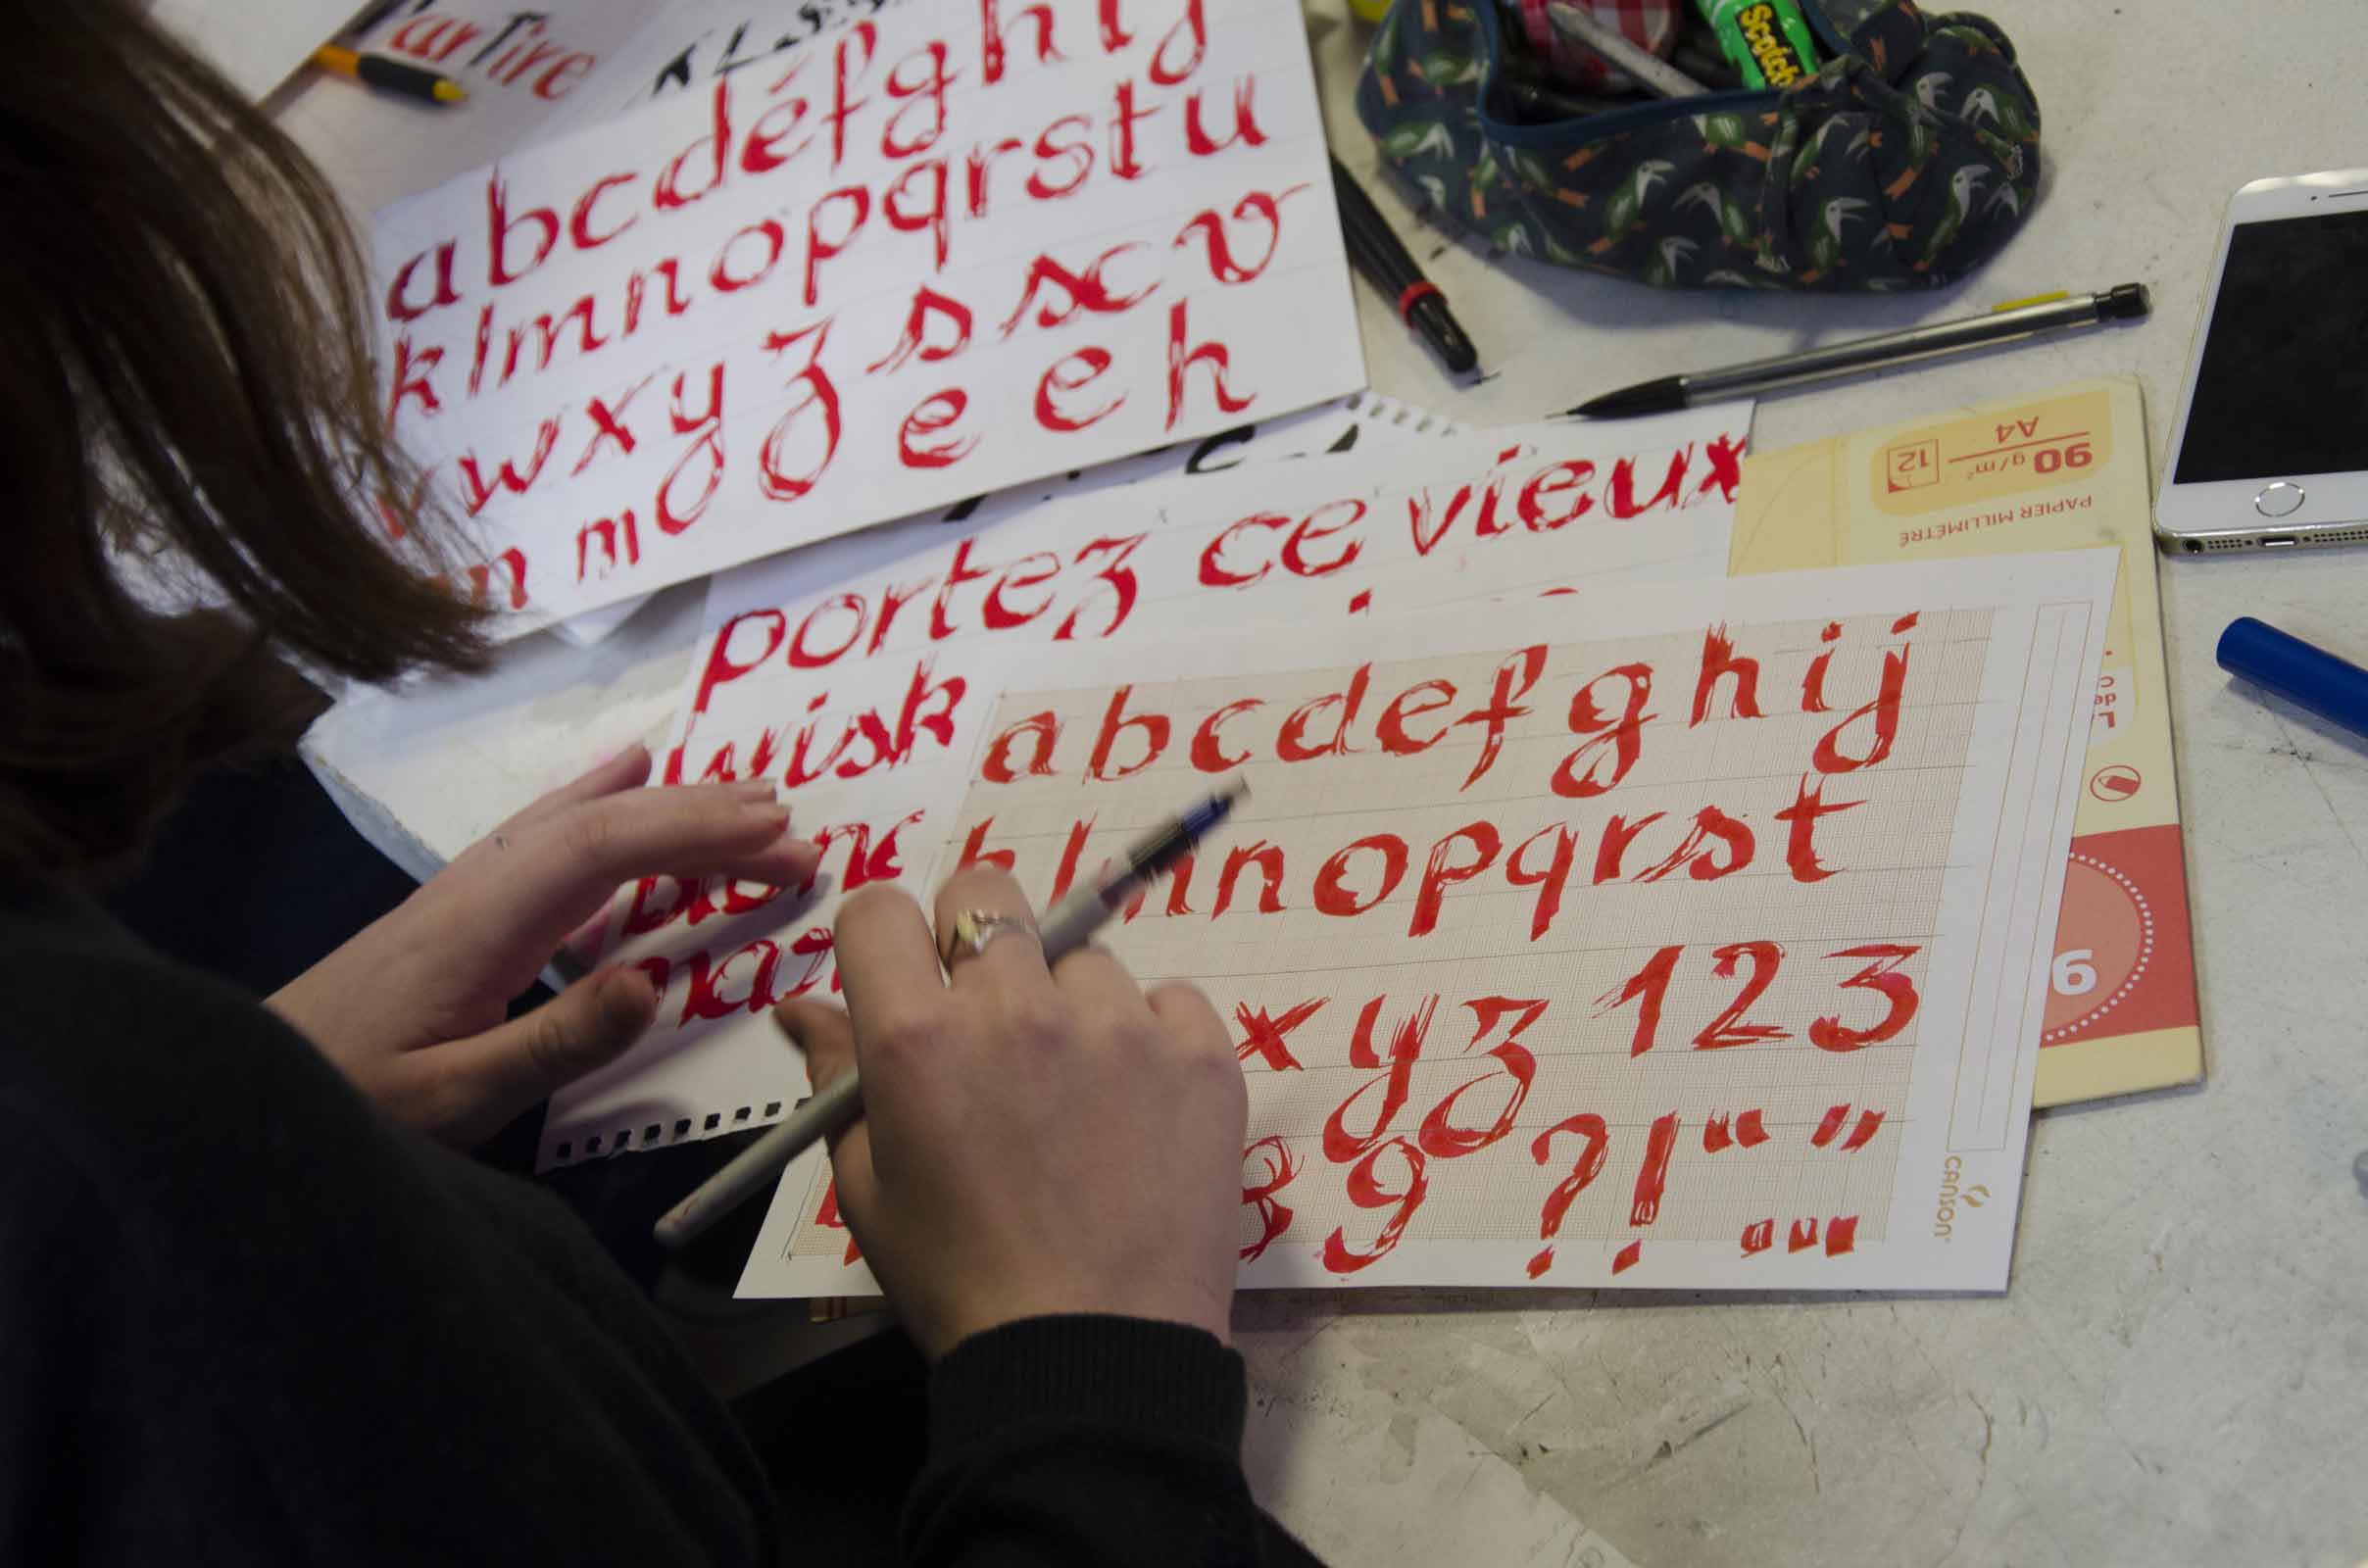 Partire
abcdéfghij
klmnopqrstu
wxyz s sc v
m e e h
portez ce vieux
wisk
blonc
abcdefghij
klmnopqrst
xyz 123
89?!“ ”
Scotch
90 g/m²
A4
12
PAPIER MILLIMÉTRÉ
CANSON